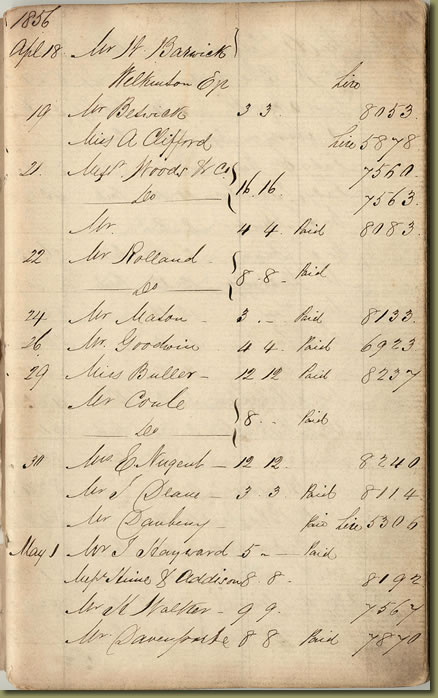 1856
Apl 18 Mr W Barwick
Wilkinson Esq Lire
19 Mr Beswick 3 3. 8053.
Miss A Clifford Lire 5878
21. Messrs Woods & Co 7560.
Do 16. 16. 7563.
Mr. 4 4. Paid 8083.
22 Mr Rolland
Do 8. 8. Paid
24 Mr Mason 3. - Paid 8133.
26 Mr. Goodwin 4 4. Paid 6923.
29 Miss Buller 12 12 Paid 8237
Mr Coule
Do 8. - Paid
30 Mrs E Nugent 12 12. 8240.
Mr J Deane 3 3 Paid 8114.
Mr Danbeny Paid Lire 5306
May 1 Mr J Hayward 5 - Paid
Messrs Hime & Addison 8 8. 8192
Mr H Walker 9 9. 7567
Mr Davenporte 8 8 Paid 7870